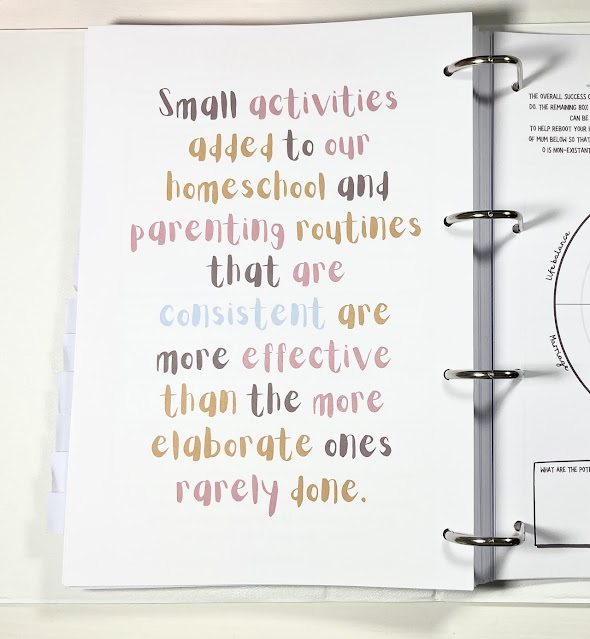 Small activities
added to our
homeschool and
parenting routines
that are
consistent are
more effective
than the more
elaborate ones
rarely done.
THE OVERALL SUCCESS
DO. THE REMAINING BOX
CAN BE
TO HELP REBOOT YOUR
OF MUM BELOW SO THAT
0 IS NON-EXISTANT
Life balance
Marriage
WHAT ARE THE